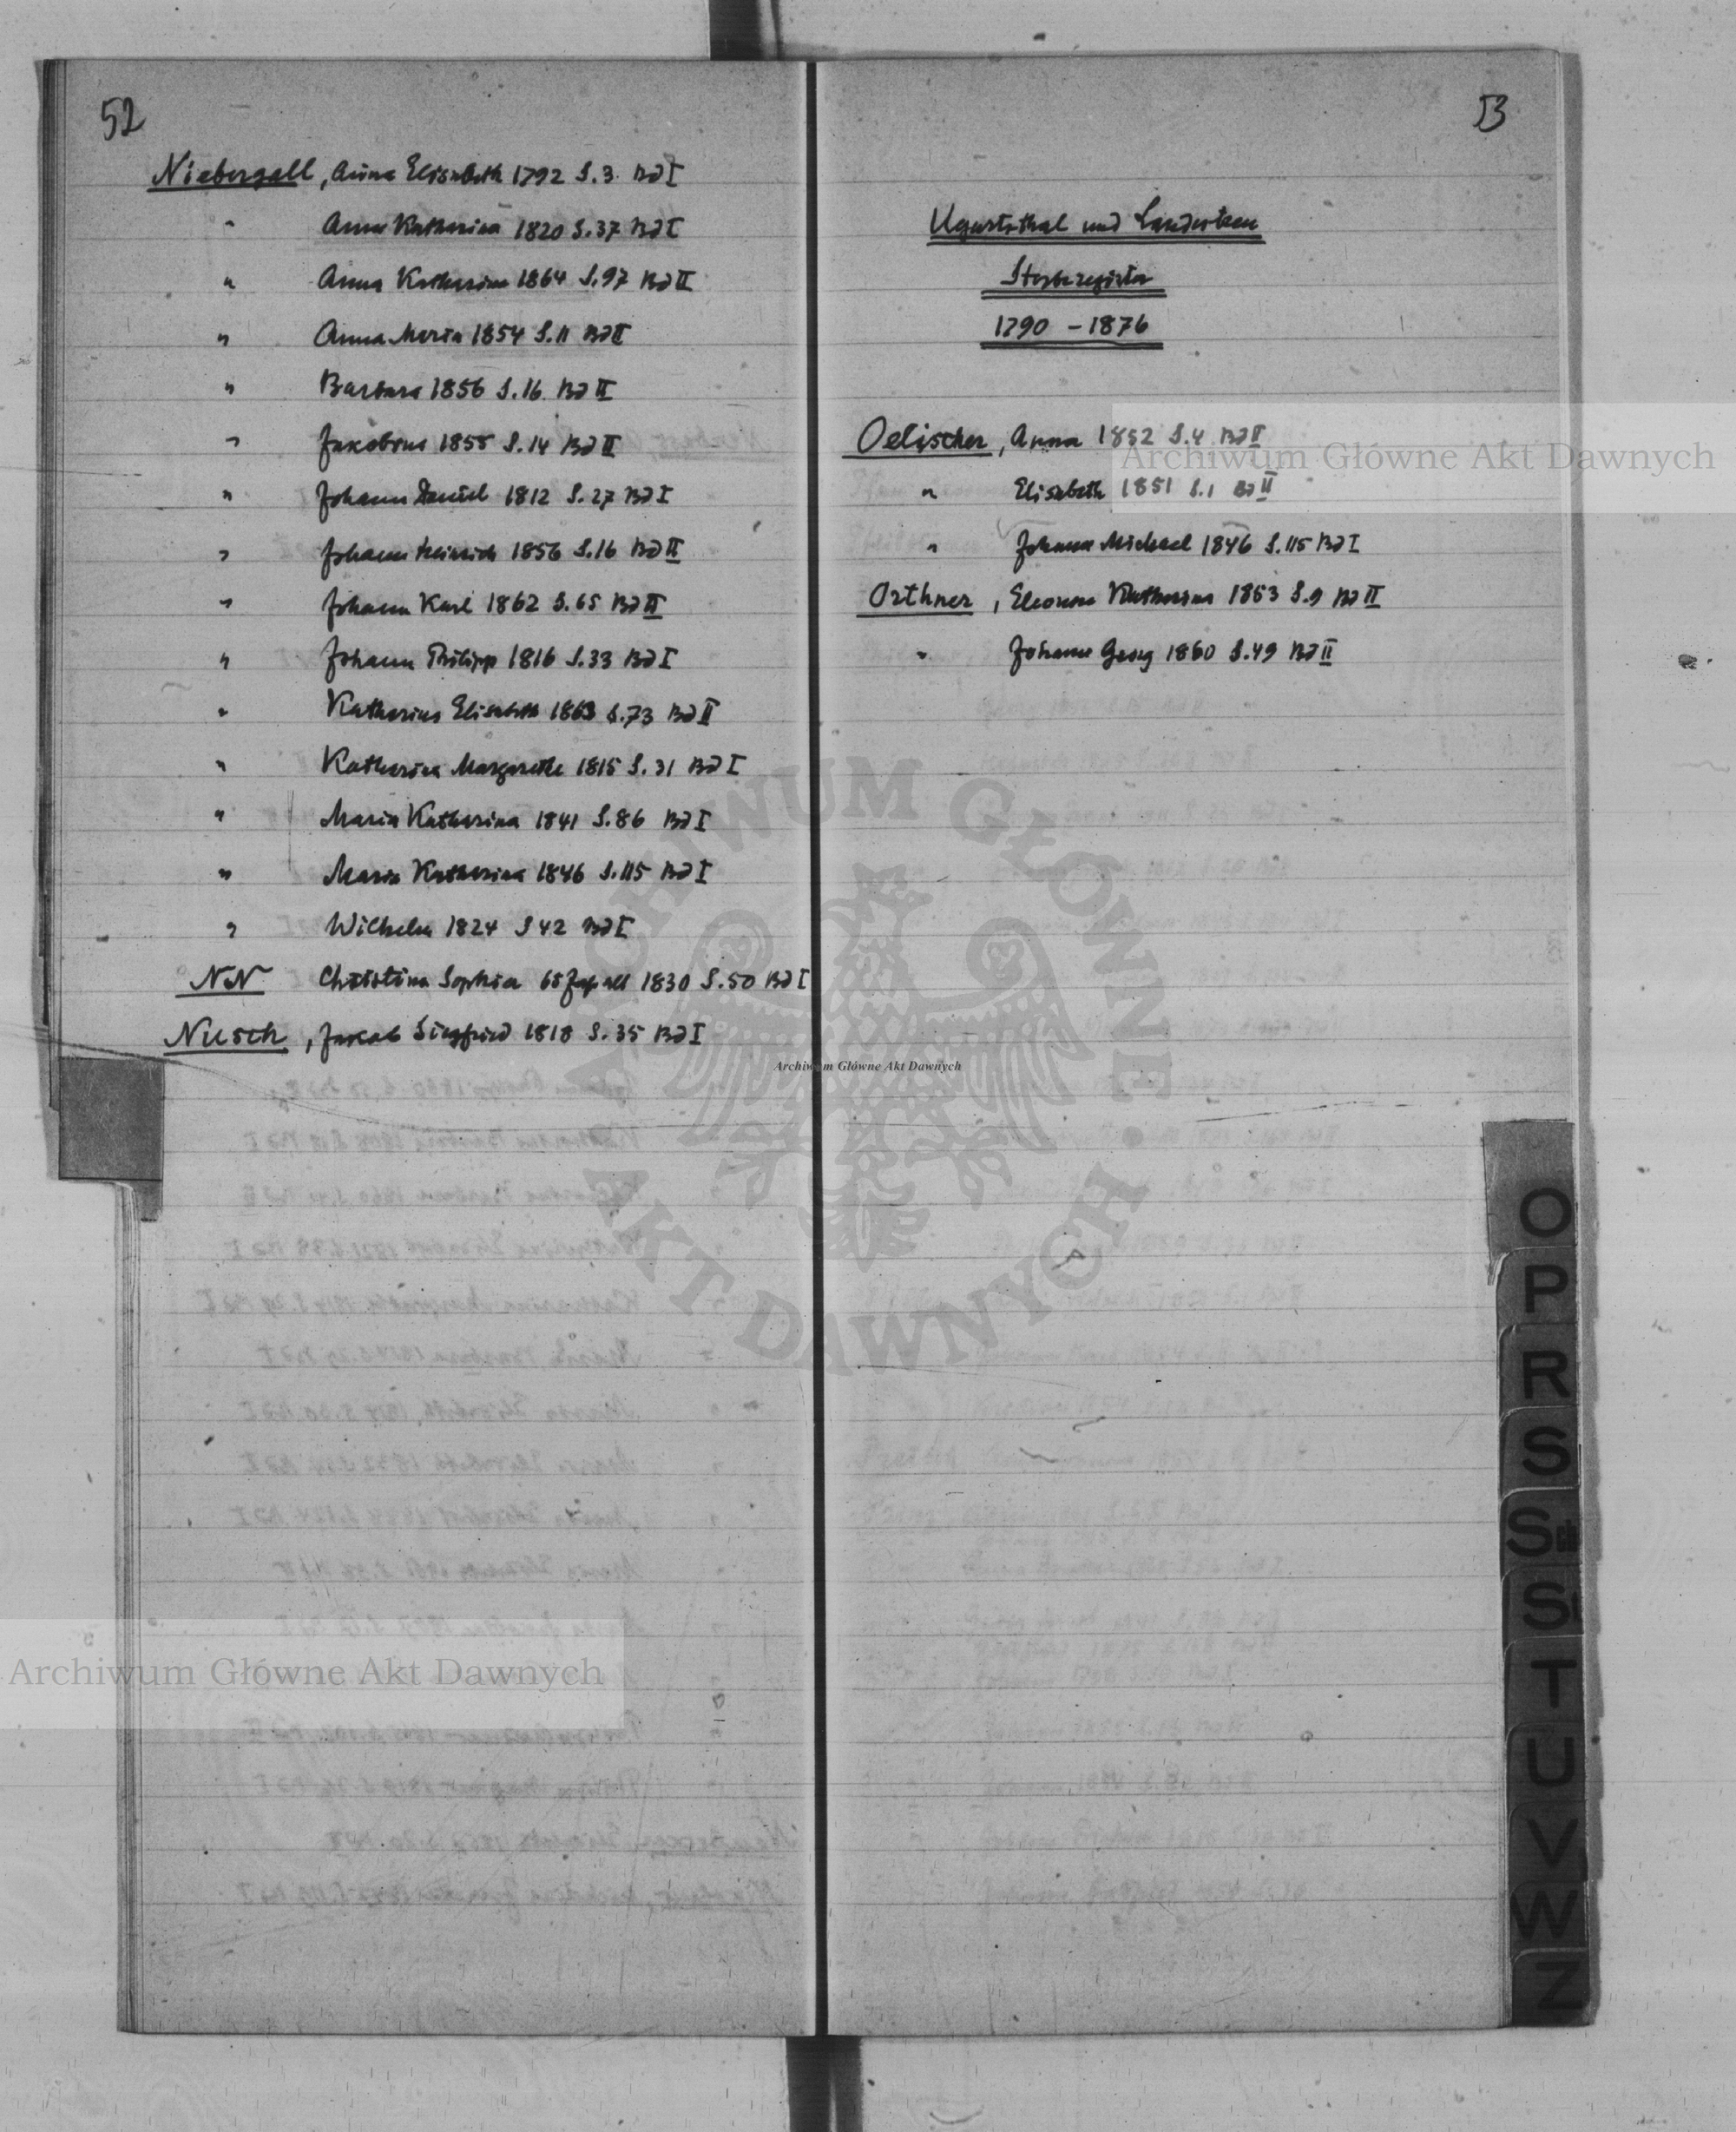 52
Niebergall, Anna Elisabeth 1792 S.3 Bd I
" Anna Katharina 1820 S.37 Bd I
" Anna Katharina 1864 S.97 Bd II
" Anna Maria 1854 S.11 Bd II
" Barbara 1856 S.16 Bd II
" Jakobine 1855 S.14 Bd II
" Johann Daniel 1812 S.27 Bd I
" Johann Heinrich 1856 S.16 Bd II
" Johann Karl 1862 S.65 Bd II
" Johann Philipp 1816 S.33 Bd I
" Katharina Elisabeth 1863 S.73 Bd II
" Katharina Margarethe 1815 S.31 Bd I
" Maria Katharina 1841 S.86 Bd I
" Maria Katharina 1846 S.115 Bd I
" Wilhelm 1824 S 42 Bd I
NN Christina Sophia 65 alt 1830 S.50 Bd I
Nusch, Jakob Siegfried 1818 S.35 Bd I
53
Ugartsthal und Landestreu
Sterberegister
1790 - 1876
Oelischer, Anna 1852 S.4 Bd II
" Elisabeth 1851 S.1 Bd II
" Johann Michael 1846 S.115 Bd I
Orthner, Eleonore Katharina 1853 S.9 Bd II
" Johann Georg 1860 S.49 Bd II
O
P
R
S
Sch
St
T
U
V
W
Z
Archiwum Główne Akt Dawnych
ARCHIWUM GŁÓWNE AKT DAWNYCH
Archiwum Główne Akt Dawnych
Archiwum Główne Akt Dawnych